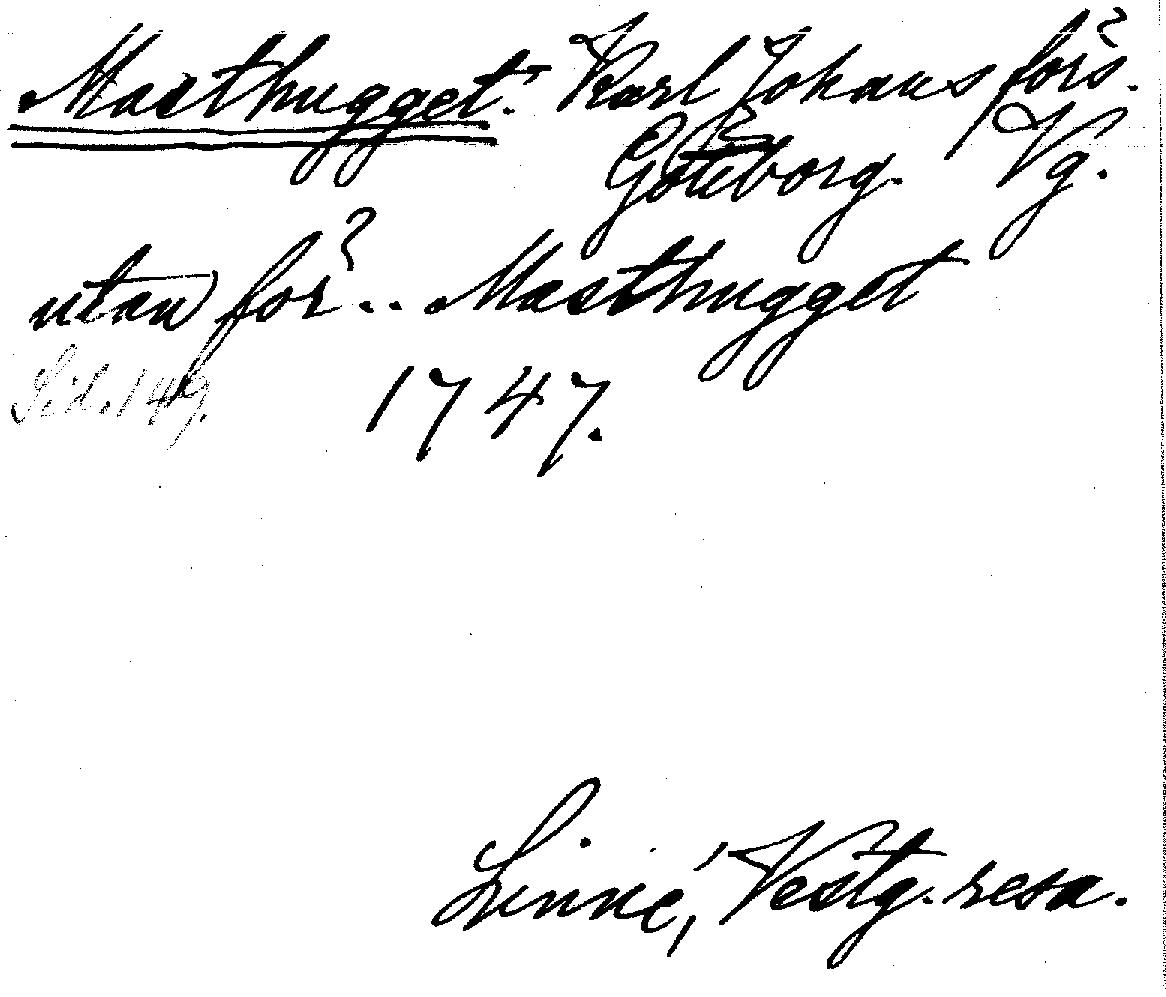 Masthugget: Karl Johans förs.
Göteborg. Vg.
utan för .. Masthugget
Sid. 149. 1747.
Linné, Vestg. resa.